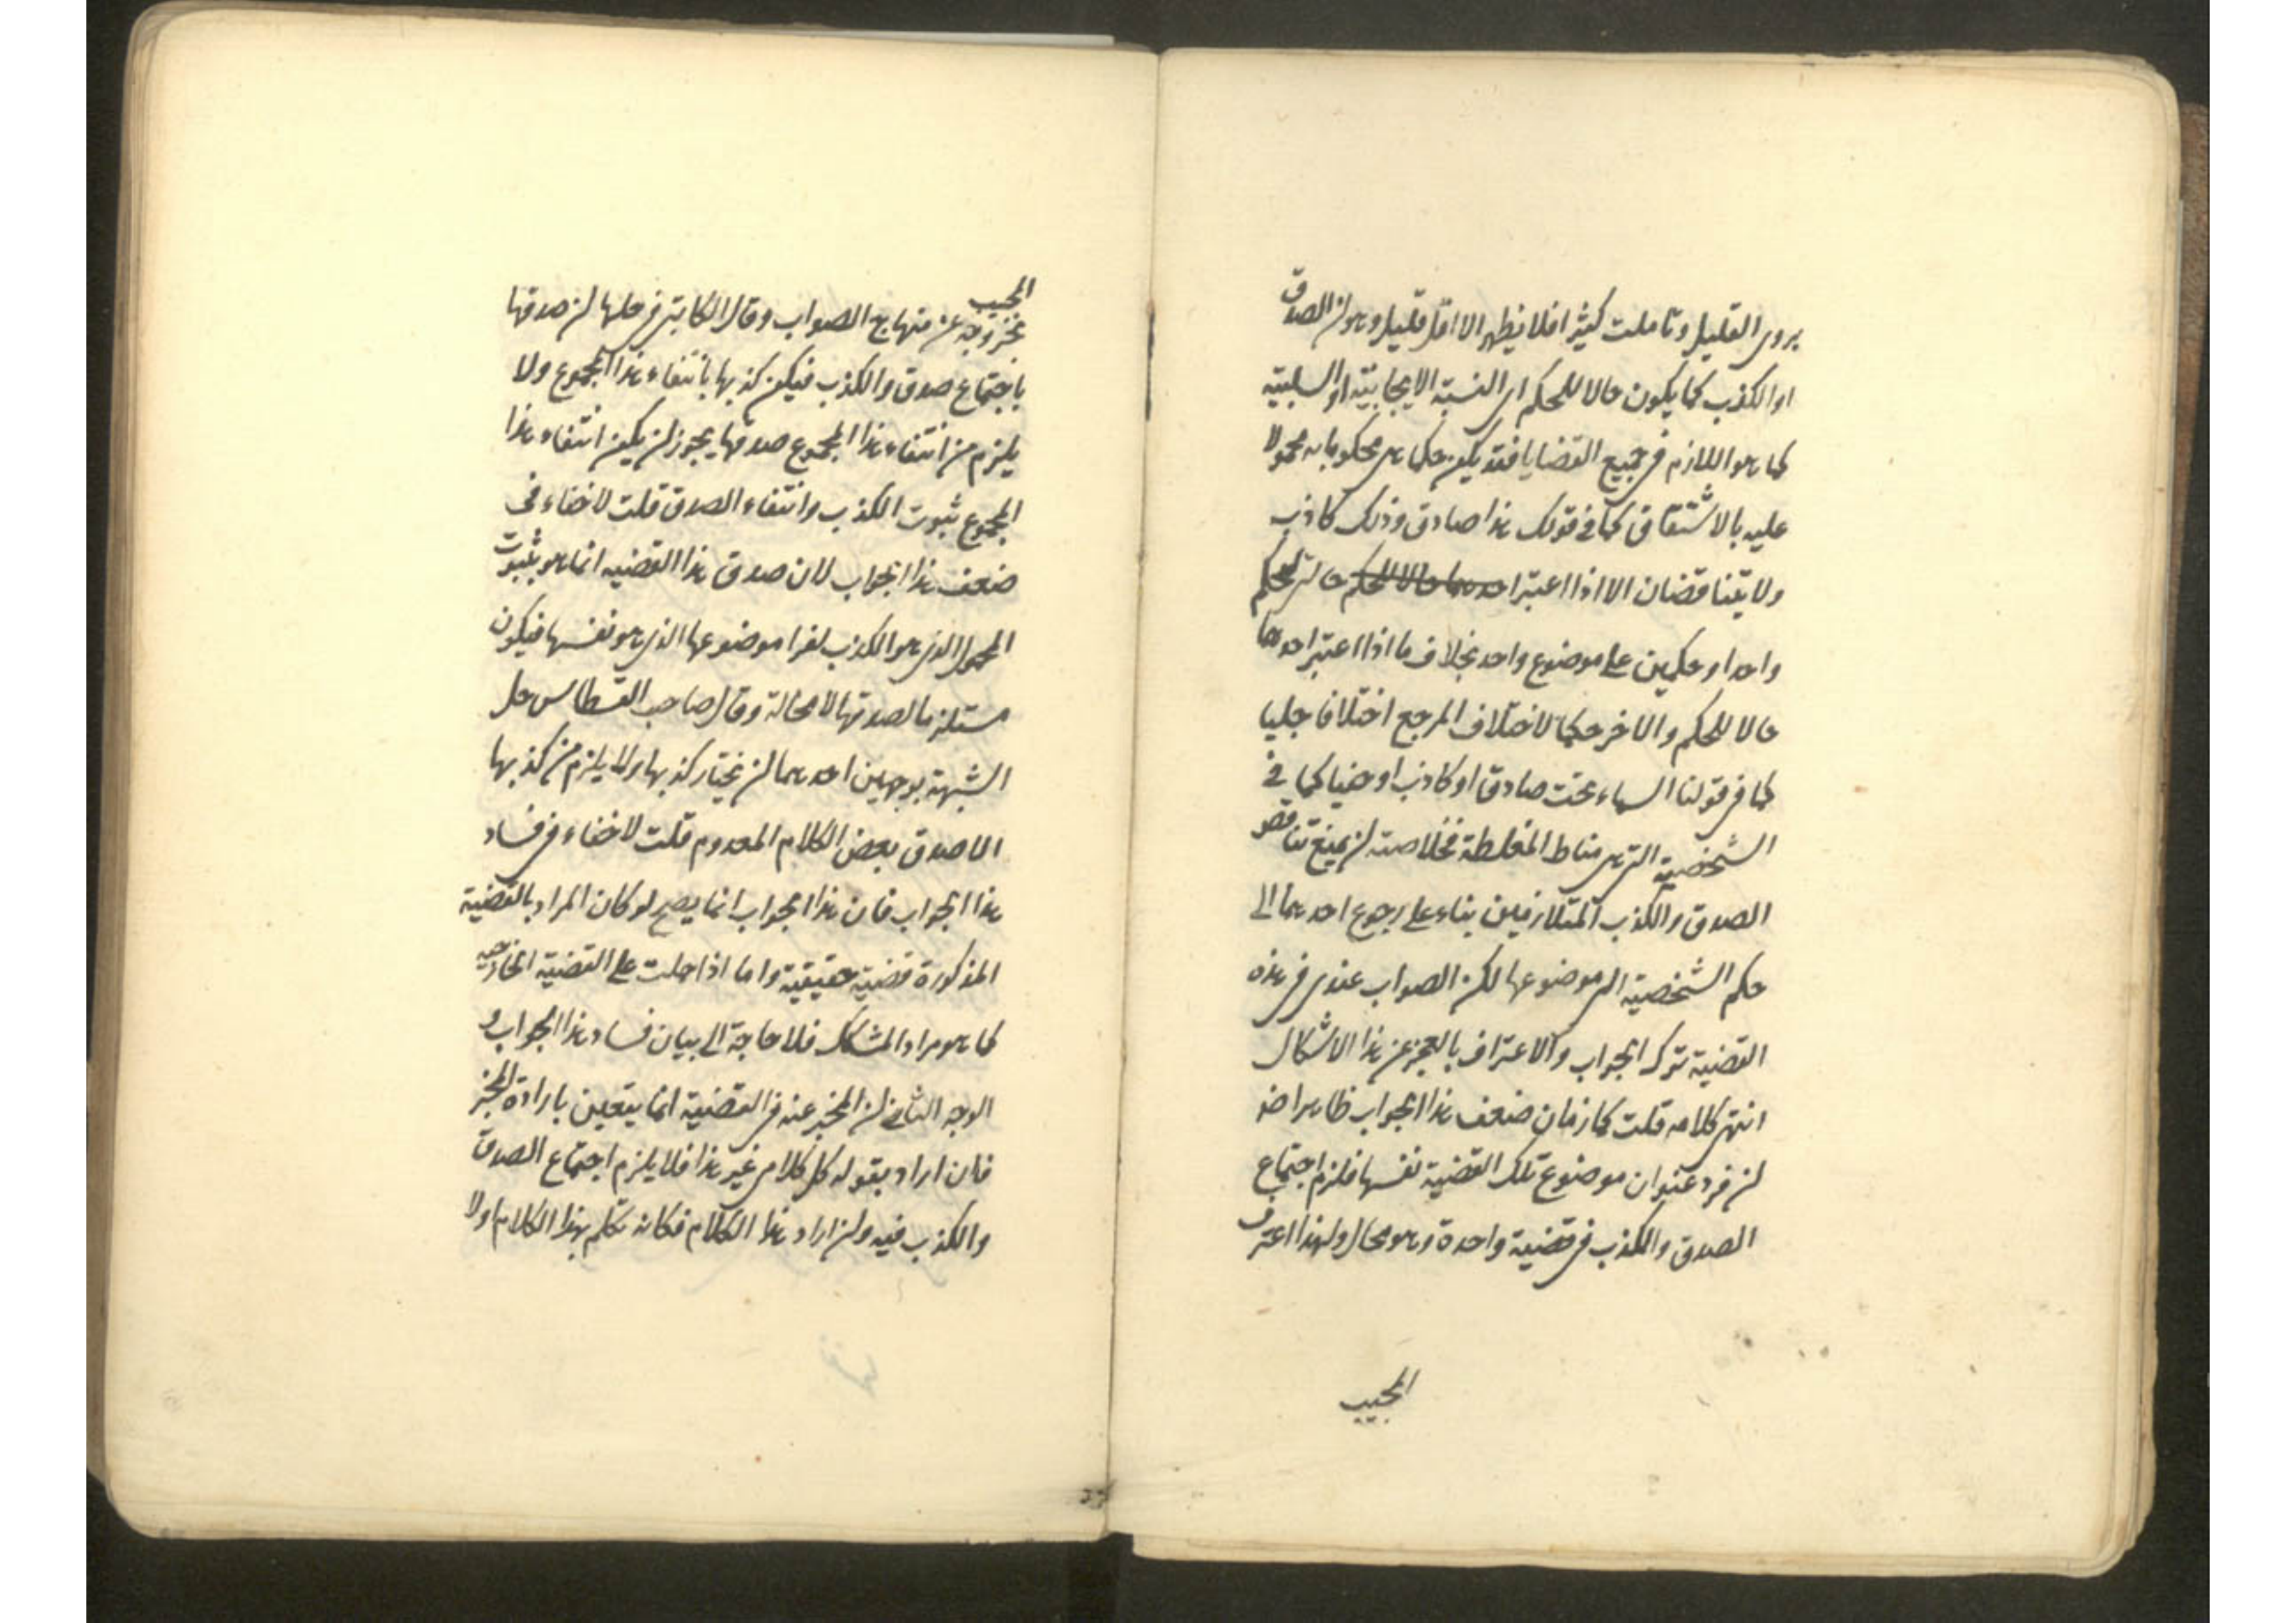 يروى القليل وتاملت كثيرا فلا يظهر الا اقل قليل وهو ان الصدق
او الكذب كما يكون حالا للحكم اى النسبة الايجابية او السلبية
كما هو اللازم فى جميع القضايا فقد يكون حكما اى محكوما به محمولا
عليه بالاشتقاق كما فى قولك هذا صادق وذلك كاذب
ولا يتناقضان الا اذا اعتبرا حالين لحكم
واحد او حكمين على موضوع واحد بخلاف ما اذا اعتبر احدهما
حالا للحكم والاخر حكما لاختلاف المرجع اختلافا جليا
كما فى قولنا السماء تحت صادق او كاذب او خفيا كما فى
الشخصية التى هى مناط المغلطة فخلاصته ان يمنع تناقض
الصدق والكذب المتلازمين بناء على رجوع احدهما الى
حكم الشخصية الى موضوعها لكن الصواب عندى فى هذه
القضية ترك الجواب والاعتراف بالعجز عن هذا الاشكال
انتهى كلامه قلت كما زمان ضعف هذا الجواب ظاهرا ضه
ان فرد عنوان موضوع تلك القضية نفسها فلزم اجتماع
الصدق والكذب فى قضية واحدة وهو محال ولهذا اعترف
المجيب
المجيب
بخروجه عن منهاج الصواب وقال الكاتبى فى حلها ان صدقها
باجتماع صدق والكذب فيكون كذبها بانتفاء هذا المجموع ولا
يلزم من انتفاء هذا المجموع صدقها يجوز ان يكون انتفاء هذا
المجموع بثبوت الكذب وانتفاء الصدق قلت لا خفاء فى
ضعف هذا الجواب لان صدق هذا القضيه انما هو بثبوت
المحمول الذى هو الكذب لفرد موضوعها الذى هو نفسها فيكون
مستلزما لصدقها لا محالة وقال صاحب القسطاس حل
الشبهة بوجهين احدهما ان نختار كذبها ولا يلزم من كذبها
الا صدق بعض الكلام المعدوم قلت لا خفاء فى فساد
هذا الجواب فان هذا الجواب انما يصح لو كان المراد بالقضية
المذكورة قضية حقيقية واما اذا حملت على القضية الخارجيه
كما هو مراد المشكك فلا حاجة الى بيان فساد هذا الجواب و
الوجه الثانى ان المخبر عنه فى القضية انما يتعين بارادة المخبر
فان اراد بقوله كل كلامى غير هذا فلا يلزم اجتماع الصدق
والكذب فيه وان اراد هذا الكلام فكانه تكلم بهذا الكلام اولا